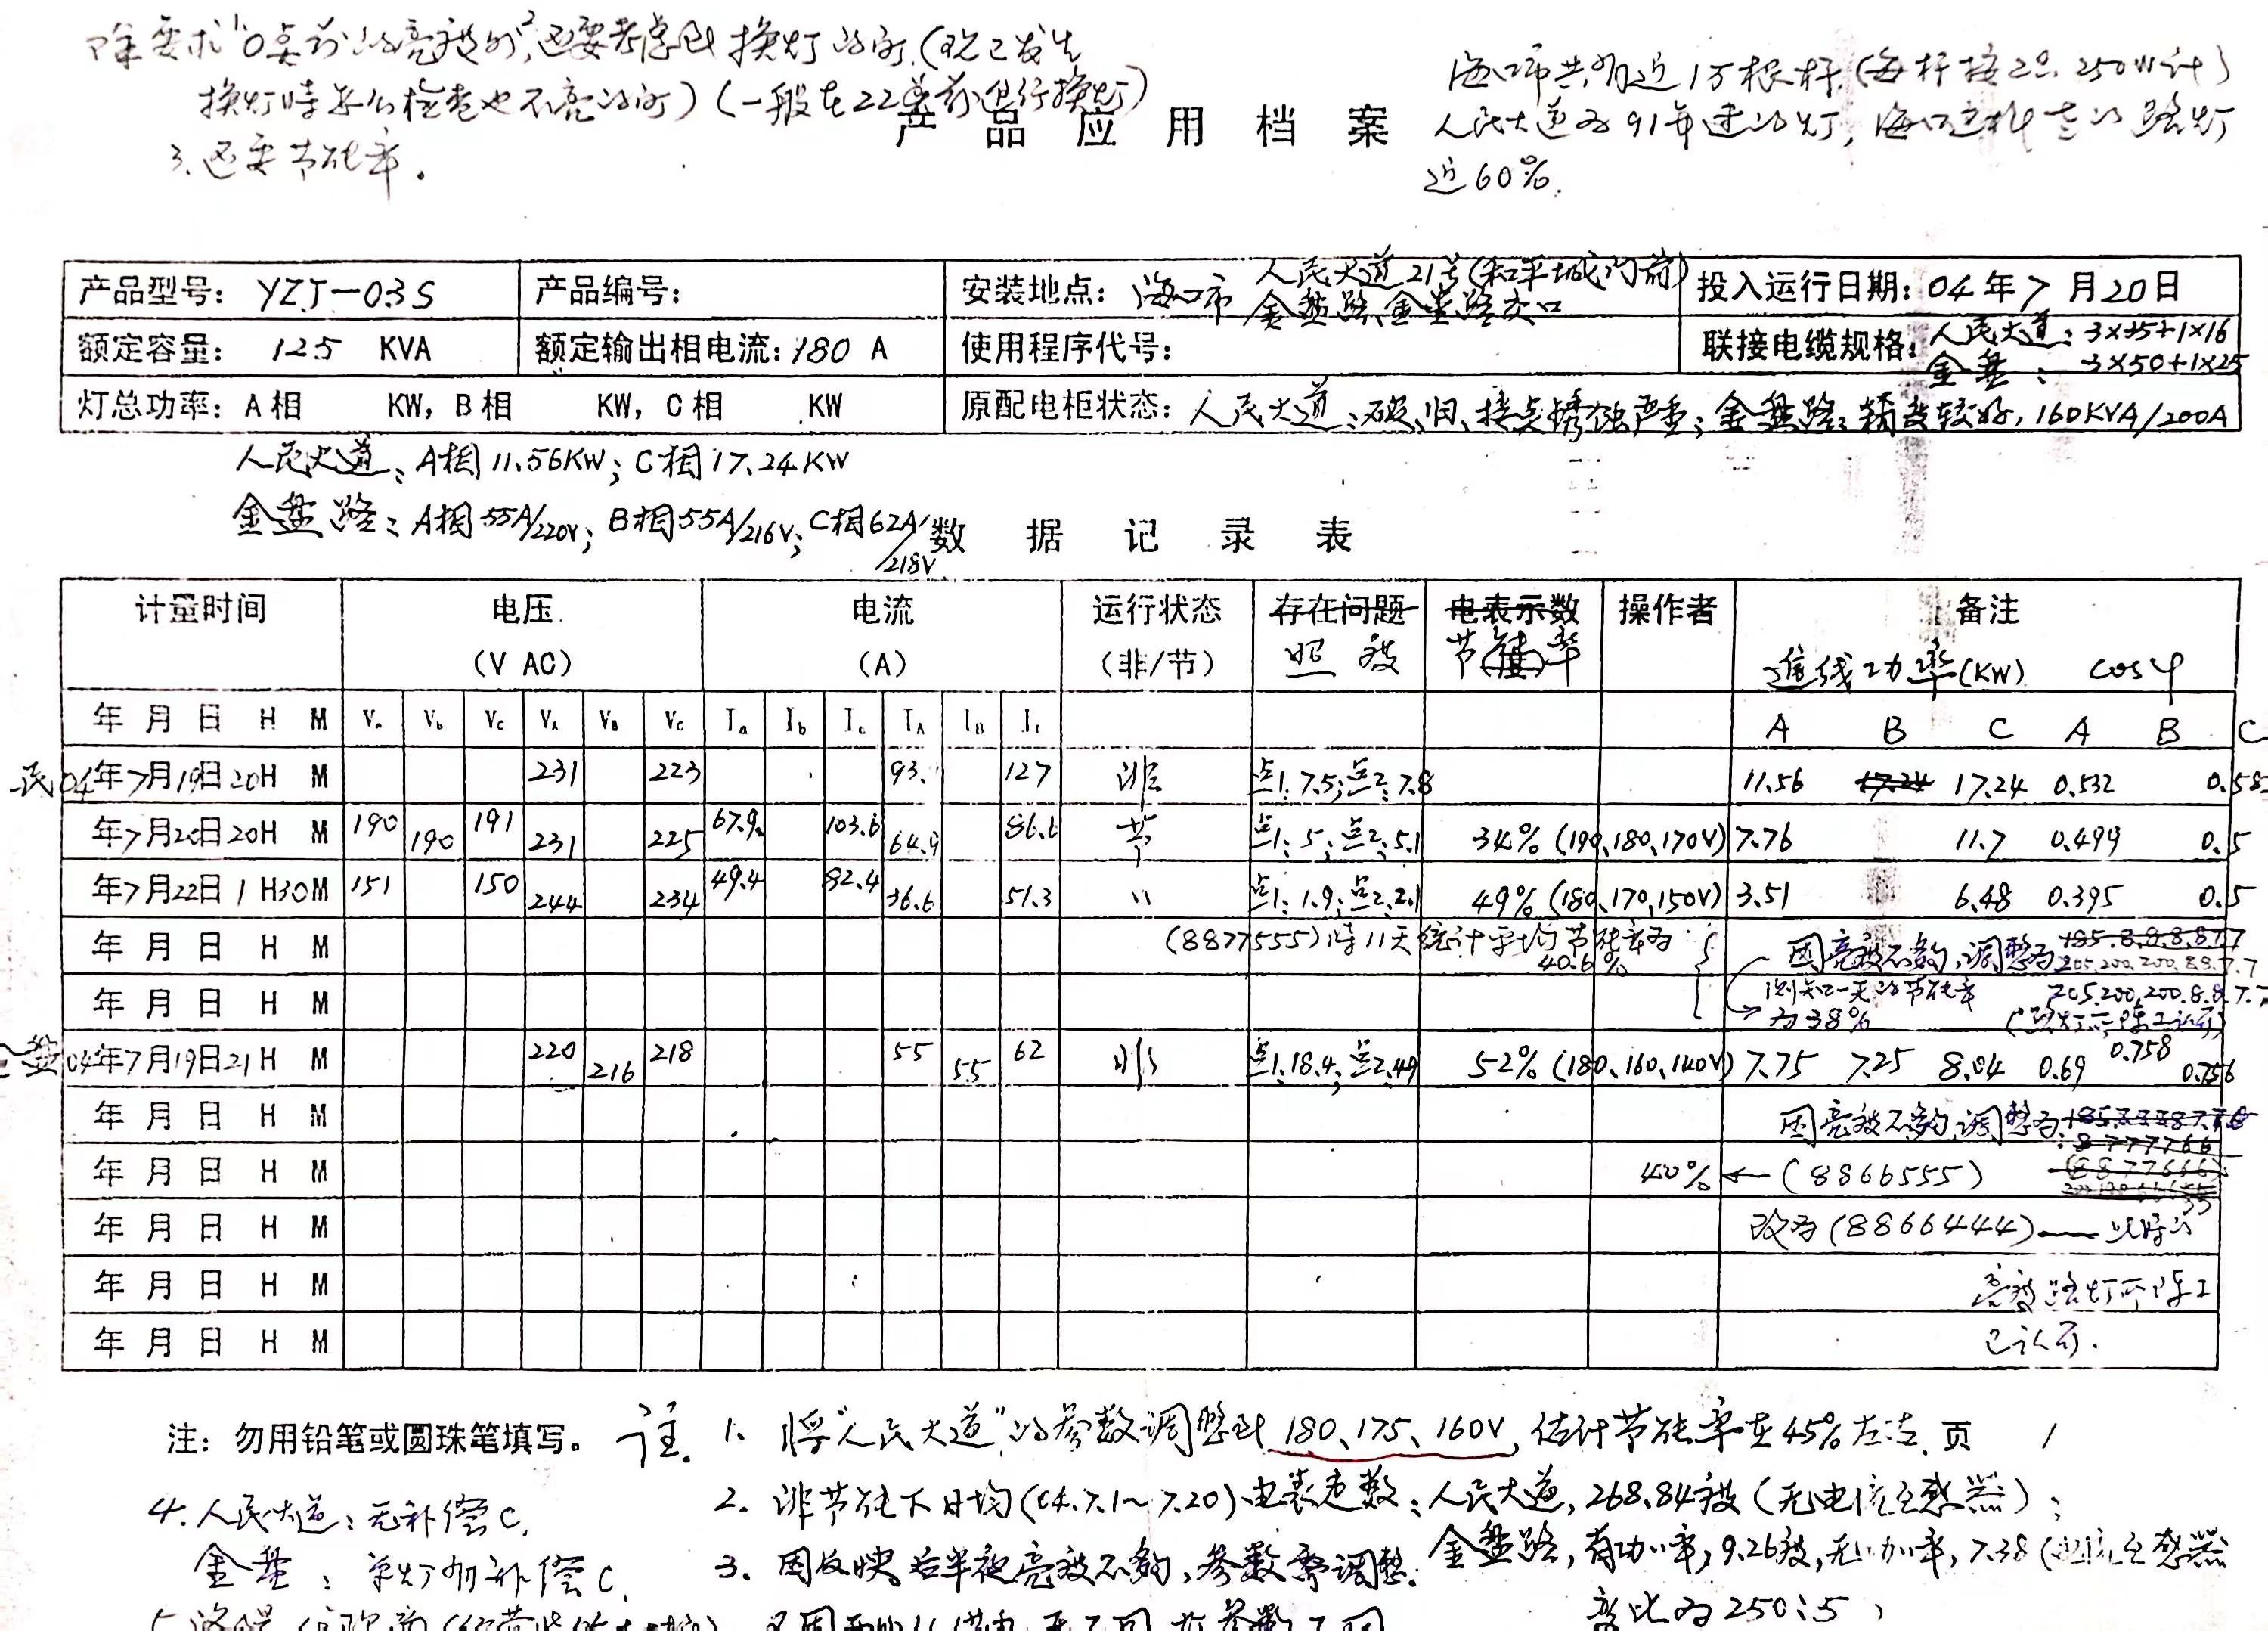 除要求"0点前的亮度外",2还要考虑到换灯的问.(现已发生
换灯时怎么检查也不亮的问)(一般在22点前进行换灯)
3.还要节能率.
海口市共有近1万根杆(每杆按2只250W计)
人民大道为91年建的灯,海口这种老的路灯
近60%.
产品应用档案
产品型号: YZJ-03S 产品编号: 安装地点: 海口市 人民大道21号(和平城门前) 金盘路、金星路交口 投入运行日期: 04年7月20日
额定容量: 125 KVA 额定输出相电流: 180 A 使用程序代号: 联接电缆规格: 人民大道: 3×35+1×16 金盘: 3×50+1×25
灯总功率: A相 KW, B相 KW, C相 KW 原配电柜状态: 人民大道:破、旧、接点锈蚀严重; 金盘路: 较好, 160KVA/200A
人民大道: A相11.56KW; C相17.24KW
金盘路: A相55A/220V; B相55A/216V; C相62A/218V
数据记录表
计量时间 电压 (V AC) 电流 (A) 运行状态 (非/节) 存在问题 照度 电表示数 节能率 操作者 备注 进线功率(KW) cosφ
年 月 日 H M Va Vb Vc VA VB VC Ia Ib Ic IA IB IC A B C A B C
民 04年7月19日20H M 231 223 93. 127 非 点1:7.5; 点2:7.8 11.56 17.24 17.24 0.532 0.58
年7月20日20H M 190 190 191 231 225 67.9 103.6 64.9 86.6 节 点1:5; 点2:5.1 34% (190、180、170V) 7.76 11.7 0.499 0.5
年7月22日1H30M 151 150 244 234 49.4 82.4 36.6 51.3 〃 点1:1.9; 点2:2.1 49% (180、170、150V) 3.51 6.48 0.395 0.5
年 月 日 H M (8877555)时11天统计平均节能率为40.6% 因亮度不够,调整为 205.200.200.8.8.7.7
年 月 日 H M 测知一天的节能率为38% 205.200.200.8.8.7.7 (路灯所陈工认可)
金盘 04年7月19日21H M 220 216 218 55 55 62 非 点1:18.4; 点2:49 52% (180、160、140V) 7.75 7.25 8.04 0.69 0.758 0.756
年 月 日 H M 因亮度不够,调整为: 8777766
年 月 日 H M 40% ← (8866555) (8877666)
年 月 日 H M 改为(8866444)—— 此时的
年 月 日 H M 亮度路灯所陈工
年 月 日 H M 已认可.
注: 勿用铅笔或圆珠笔填写。
注. 1. 将"人民大道"的参数调整到180、175、160V,估计节能率在45%左右. 页 1
2. 非节能下日均(04.7.1~7.20)电表走数: 人民大道,268.84度(无电流互感器);
金盘路,有功率,9.26度,无功率,7.38(电流互感器
变比为250:5,
3. 因反映后半夜亮度不够,参数需调整.
4. 人民大道:无补偿C,
金盘:单灯有补偿C.